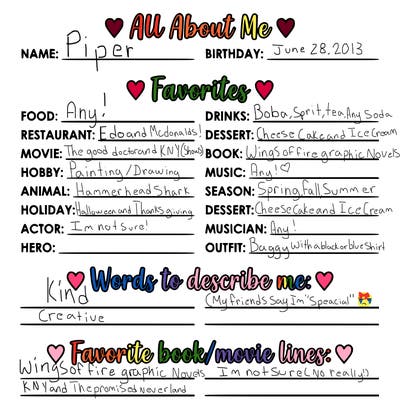 All About Me
NAME: Piper
BIRTHDAY: June 28, 2013
Favorites
FOOD: Any!
DRINKS: Boba, Sprit, tea, Any Soda
RESTAURANT: Edo and Mcdonalds!
DESSERT: Cheese Cake and Ice Cream
MOVIE: The good doctor and KNY (Shows)
BOOK: Wings of fire graphic Novels
HOBBY: Painting/Drawing
MUSIC: Any!♡
ANIMAL: Hammerhead Shark
SEASON: Spring, fall Summer
HOLIDAY: Halloween and Thanksgiving
DESSERT: Cheese Cake and Ice Cream
ACTOR: I'm not Sure!
MUSICIAN: Any!
HERO:
OUTFIT: Baggy with a black or blue Shirt
Words to describe me:
Kind
(My friends Say I'm "Speacial"
Creative
Favorite book/movie lines:
Wings of fire graphic Novels
I'm not Sure (No really!)
KNY and The promised Neverland